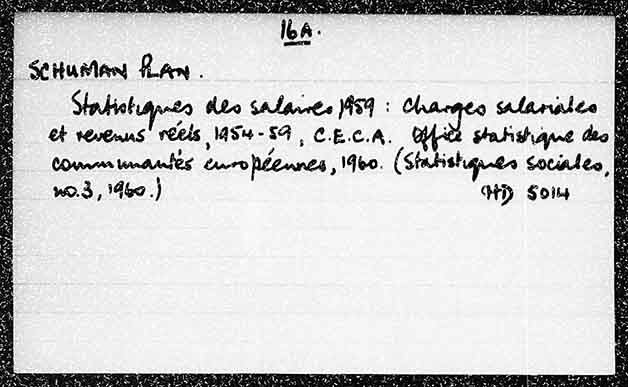 16A.
SCHUMAN PLAN.
Statistiques des salaires 1959 : Charges salariales
et revenus réels, 1954-59, C.E.C.A. Office statistique des
communautés européennes, 1960. (Statistiques sociales,
no. 3, 1960.) HD 5014